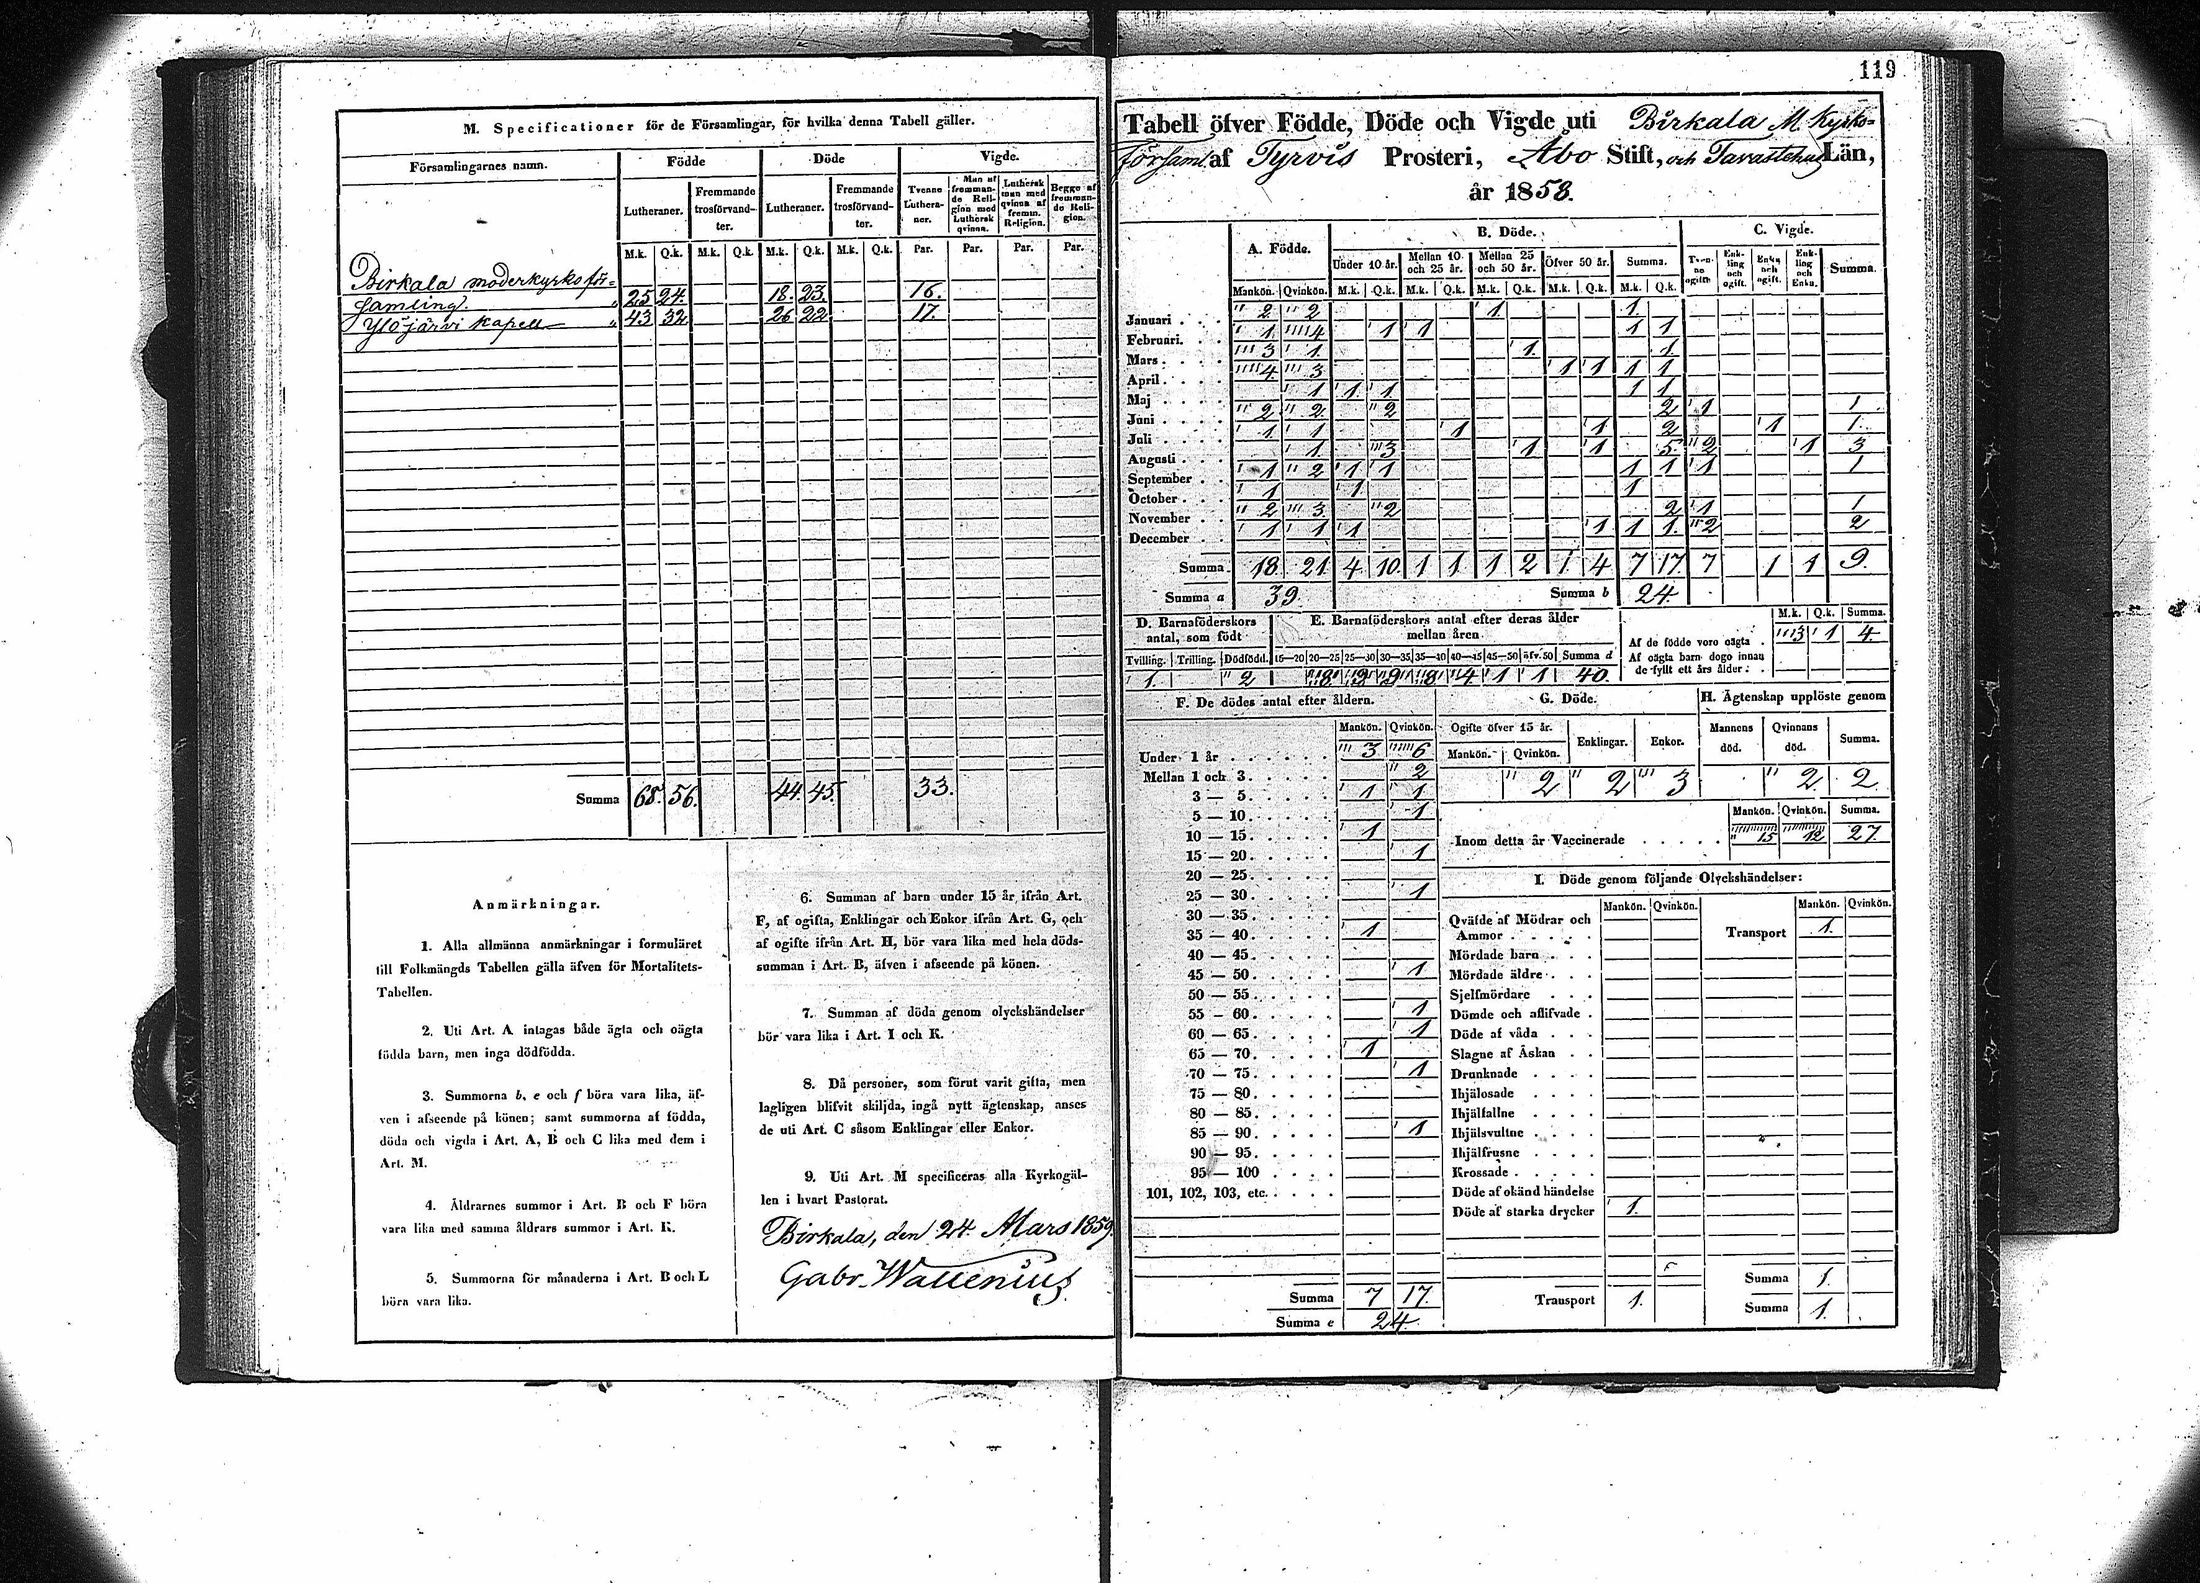 M. Specificationer för de Församlingar, för hvilka denna Tabell gäller.
Församlingarnes namn. Födde Döde Vigde.
Lutheraner. Fremmande trosförvandter. Lutheraner. Fremmande trosförvandter. Tvenne Lutheraner. Man af fremmande Religion med Luthersk qvinna. Luthersk man med qvinna af fremm. Religion. Begge af fremmande Religion.
M.k. Q.k. M.k. Q.k. M.k. Q.k. M.k. Q.k. Par. Par. Par. Par.
Birkala moderkyrkoför=
samling. " 25 24. 18. 23. 16.
Ylöjärvi Kapell " 43 32 26 22 17.
Summa 68. 56. 44. 45. 33.
Anmärkningar.
1. Alla allmänna anmärkningar i formuläret
till Folkmängds Tabellen gälla äfven för Mortalitets-
Tabellen.
2. Uti Art. A intagas både ägta och oägta
födda barn, men inga dödfödda.
3. Summorna b, e och f böra vara lika, äf-
ven i afseende på könen; samt summorna af födda,
döda och vigda i Art. A, B och C lika med dem i
Art. M.
4. Åldrarnes summor i Art. B och F böra
vara lika med samma åldrars summor i Art. K.
5. Summorna för månaderna i Art. B och L
böra vara lika.
6. Summan af barn under 15 år ifrån Art.
F, af ogifta, Enklingar och Enkor ifrån Art. G, och
af ogifte ifrån Art. H, bör vara lika med hela döds-
summan i Art. B, äfven i afseende på könen.
7. Summan af döda genom olyckshändelser
bör vara lika i Art. I och K.
8. Då personer, som förut varit gifta, men
lagligen blifvit skiljda, ingå nytt ägtenskap, anses
de uti Art. C såsom Enklingar eller Enkor.
9. Uti Art. M specificeras alla Kyrkogäl-
len i hvart Pastorat.
Birkala, den 24. Mars 1859.
Gabr. Wallenius
119
Tabell öfver Födde, Döde och Vigde uti Birkala M. Kyrko=
församl. af Tyrvis Prosteri, Åbo Stift, och Tavastehus Län,
år 1858.
A. Födde. B. Döde. C. Vigde.
Under 10 år. Mellan 10 och 25 år. Mellan 25 och 50 år. Öfver 50 år. Summa. Tvenne ogifte Enkling och ogift. Enka och ogift. Enkling och Enka. Summa.
Mankön. Qvinkön. M.k. Q.k. M.k. Q.k. M.k. Q.k. M.k. Q.k. M.k. Q.k.
Januari . . . 2 2 1 1
Februari. . . 1 4 1 1 1 1
Mars . . . . 3 1 1. 1
April . . . . 4 3 1 1 1 1
Maj . . . . 1 1 1 1 1
Juni . . . . 2 2 2 2 1 1
Juli . . . . 1 1 1 1 2 1 1.
Augusti . . . 1 3 1 1 5 2 1 3
September . . 1 2 1 1 1 1 1 1
October . . . 1 1 1
November . . 2 3 2 2 1 1
December . . 1 1 1 1 1 1 2 2
Summa. 18. 21 4 10 1 1 1 2 1 4 7 17 7 1 1 9.
Summa a 39. Summa b 24.
D. Barnaföderskors antal, som födt
Tvilling. Trilling. Dödfödd.
1. 2
E. Barnaföderskors antal efter deras ålder mellan åren
15—20 20—25 25—30 30—35 35—40 40—45 45—50 öfv. 50 Summa d
8 9 9 8 4 1 1 40.
M.k. Q.k. Summa.
Af de födde voro oägta . 3 1 4.
Af oägta barn dogo innan
de fyllt ett års ålder .
F. De dödes antal efter åldern.
Mankön. Qvinkön.
Under 1 år . . . . . . 3 6
Mellan 1 och 3. . . . . 2
3 — 5. . . . . 1 1
5 — 10. . . . . 1
10 — 15. . . . . 1
15 — 20. . . . . 1
20 — 25. . . . .
25 — 30. . . . . 1
30 — 35. . . . .
35 — 40. . . . . 1
40 — 45. . . . .
45 — 50. . . . . 1
50 — 55. . . . .
55 — 60. . . . . 1
60 — 65. . . . . 1
65 — 70. . . . . 1
70 — 75. . . . . 1
75 — 80. . . . .
80 — 85. . . . .
85 — 90. . . . . 1
90 — 95. . . . .
95 — 100 . . . .
101, 102, 103, etc. . . . .
Summa 7 17.
Summa e 24.
G. Döde.
Ogifte öfver 15 år. Enklingar. Enkor.
Mankön. Qvinkön.
2 2 3
H. Ägtenskap upplöste genom
Mannens död. Qvinnans död. Summa.
2. 2.
Mankön. Qvinkön. Summa.
Inom detta år Vaccinerade . . . . . 15 12 27.
I. Döde genom följande Olyckshändelser:
Mankön. Qvinkön. Mankön. Qvinkön.
Qväfde af Mödrar och
Ammor . . . . . Transport 1.
Mördade barn . . .
Mördade äldre . . .
Sjelfmördare . . .
Dömde och aflifvade .
Döde af våda . . .
Slagne af Åskan . .
Drunknade . . . .
Ihjälosade . . . .
Ihjälfallne . . . .
Ihjälsvultne . . . .
Ihjälfrusne . . . .
Krossade . . . . .
Döde af okänd händelse
Döde af starka drycker 1.
Summa 1.
Transport 1. Summa 1.